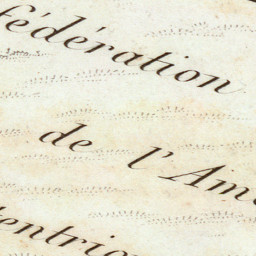 fédération
de l'Amé
tentrio